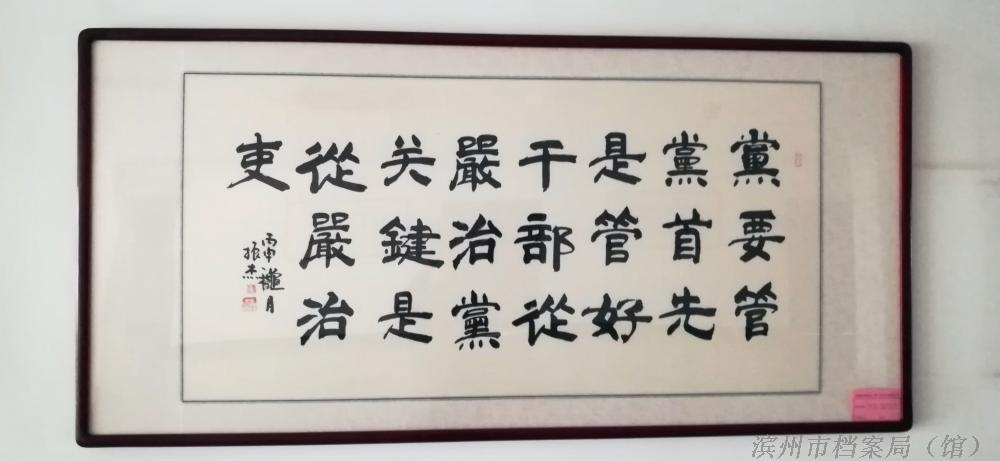 黨要管
黨首先
是管好
干部從
嚴治黨
关鍵是
從嚴治
吏
丙申
月
振杰
滨州市档案局（馆）